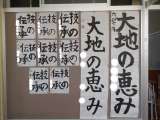 大地の恵み
大地の恵み
技の伝承
技の伝承
技の伝承
技の伝承
技の伝承
技の伝承
技の伝承
技の伝承